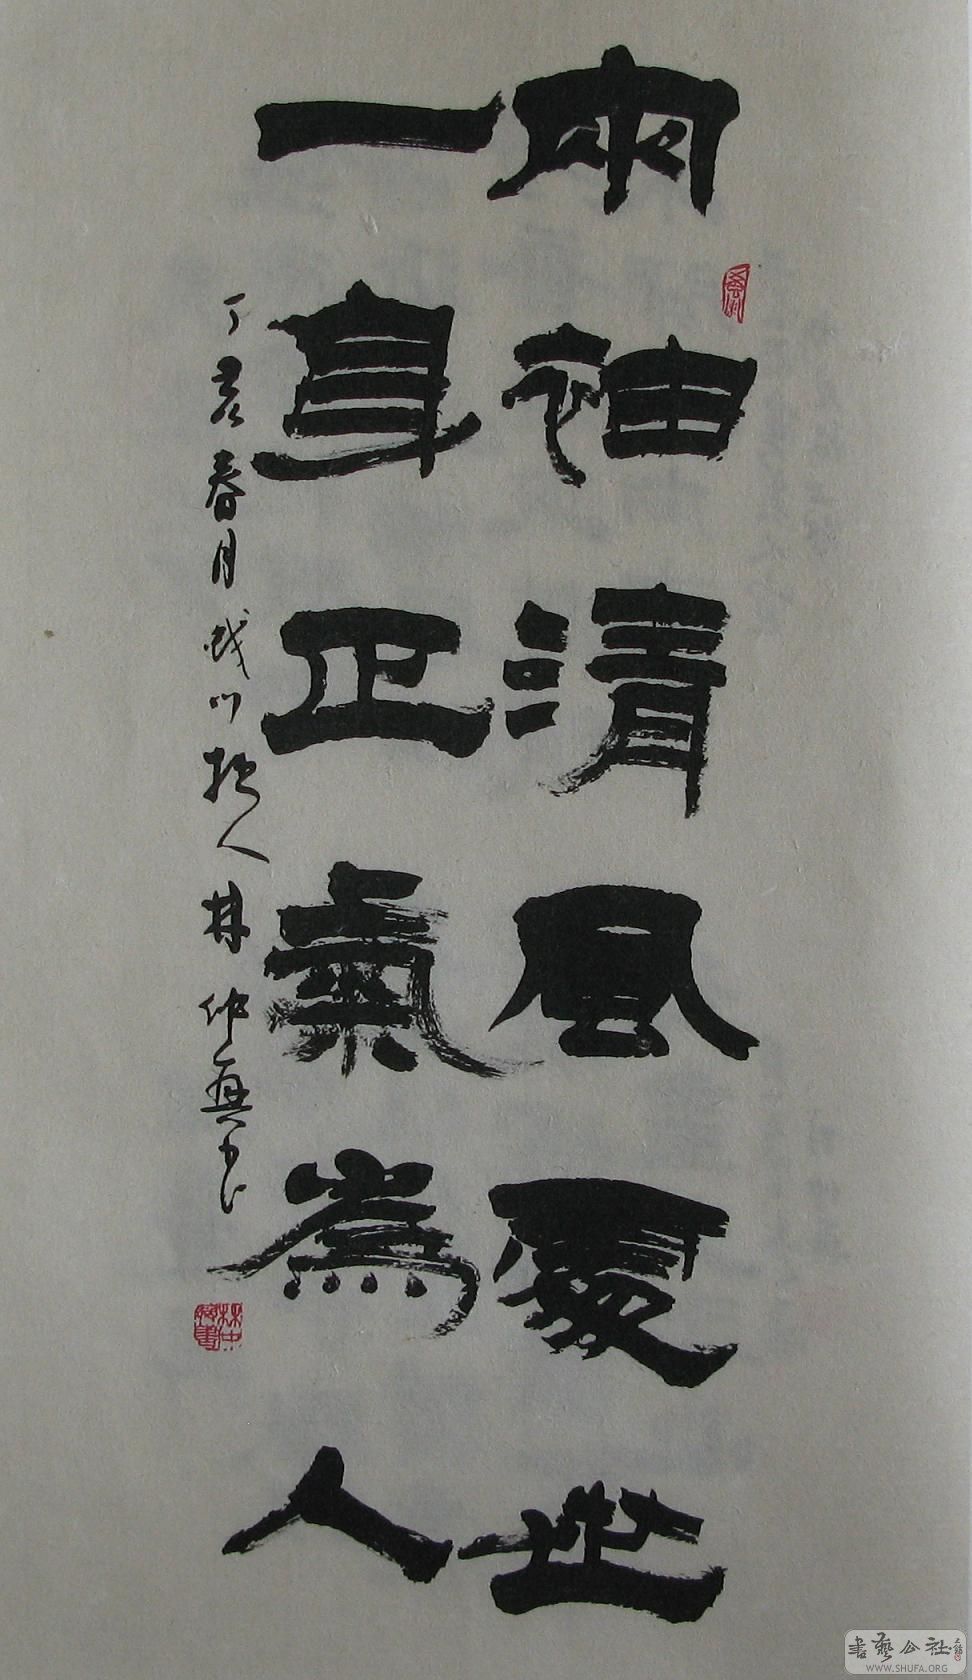 兩袖清風處世
一身正氣為人
丁亥春月 拙人林仲興书
林仲興書
書藝公社
WWW.SHUFA.ORG